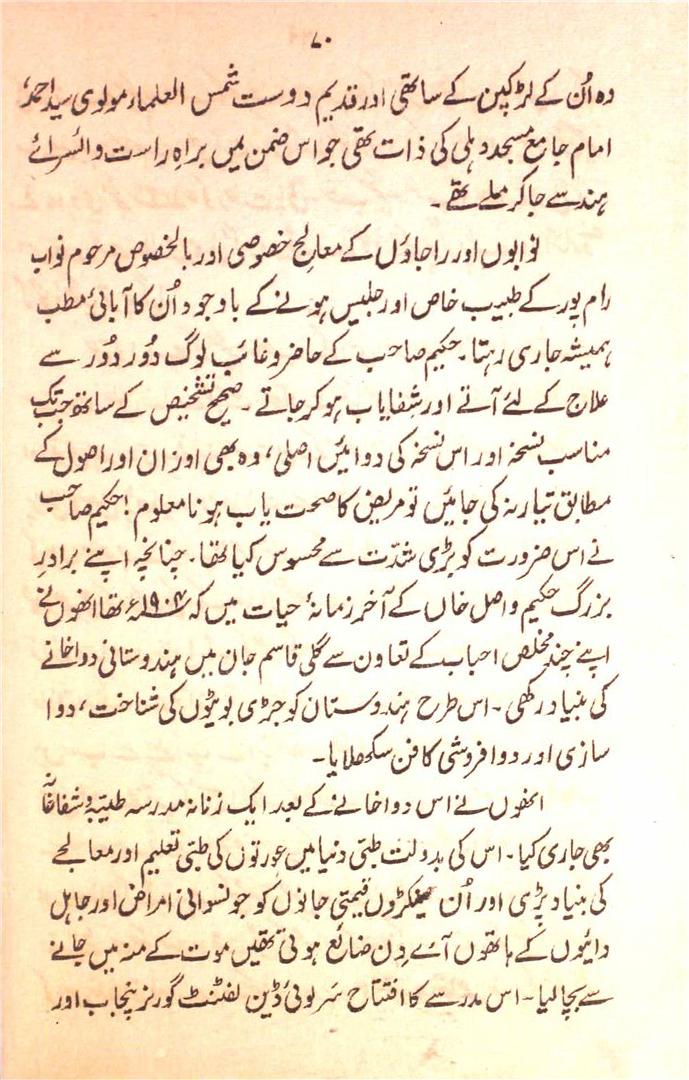 ۷۰
وہ اُن کے لڑکپن کے ساتھی اور قدیم دوست شمس العلماء مولوی سید احمدؒ
امام جامع مسجد دہلی کی ذات تھی جو اس ضمن میں براہِ راست وائسرائے
ہند سے جا کر ملے تھے۔
نوابوں اور راجاؤں کے معالجِ خصوصی اور بالخصوص مرحوم نواب
رام پور کے طبیب خاص اور جلیس ہونے کے باوجود اُن کا آبائی مطب
ہمیشہ جاری رہتا۔ حکیم صاحب کے حاضر و غائب لوگ دُور دُور سے
علاج کے لئے آتے اور شفایاب ہو کر جاتے۔ صحیح تشخیص کے ساتھ جب تک
مناسب نسخہ اور اس نسخہ کی دوائیں اصلی، وہ بھی اوزان اور اصول کے
مطابق تیار نہ کی جائیں تو مریض کا صحت یاب ہونا معلوم! حکیم صاحب
نے اس ضرورت کو بڑی شدّت سے محسوس کیا تھا۔ چنانچہ اپنے برادرِ
بزرگ حکیم واصل خاں کے آخر زمانۂ حیات میں کہ ۱۹۰۴ء تھا انھوں نے
اپنے چند مخلص احباب کے تعاون سے گلی قاسم جان میں ہندوستانی دواخانے
کی بنیاد رکھی۔ اس طرح ہندوستان کو جڑی بوٹیوں کی شناخت، دوا
سازی اور دوا فروشی کا فن سکھلایا۔
انھوں نے اس دواخانے کے بعد ایک زنانہ مدرسہ طبیّہ و شفاخانہ
بھی جاری کیا۔ اس کی بدولت طبّی دنیا میں عورتوں کی طبّی تعلیم اور معالجے
کی بنیاد پڑی اور اُن سینکڑوں قیمتی جانوں کو جو نسوانی امراض اور جاہل
دائیوں کے ہاتھوں آئے دِن ضائع ہوتی تھیں موت کے منہ میں جانے
سے بچا لیا۔ اس مدرسے کا افتتاح سَر لوئی ڈین لفٹنٹ گورنر پنجاب اور